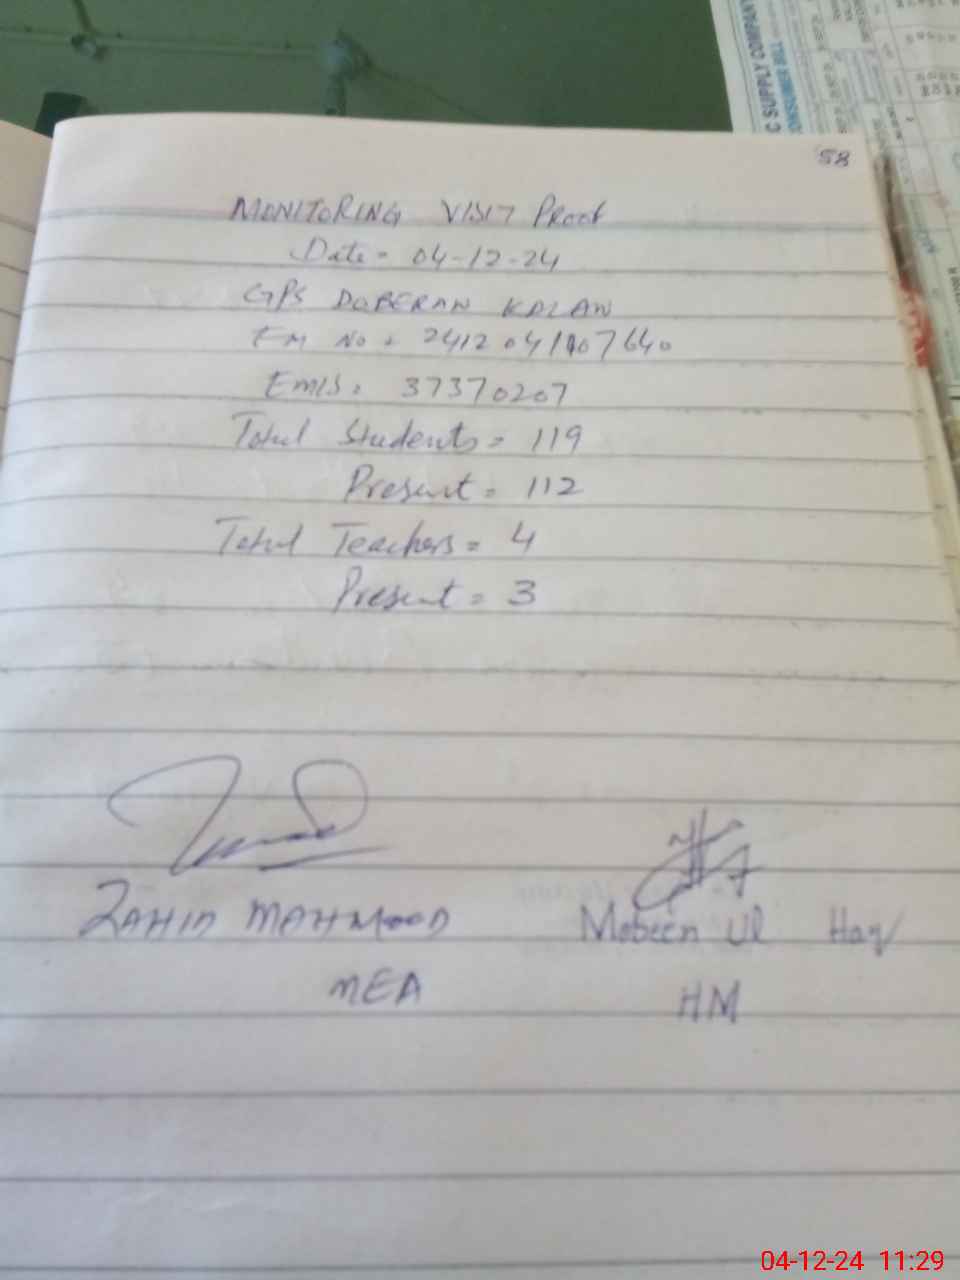 C SUPPLY COMPANY
CONSUMER BILL
58
MONITORING VISIT Proof
Date = 04-12-24
GPS DOBERAN KALAN
EM No = 2412041107640
EMIS = 37370207
Total Students = 119
Present = 112
Total Teachers = 4
Present = 3
ZAHID MAHMOOD
Mobeen Ul Haq
MEA
HM
04-12-24 11:29